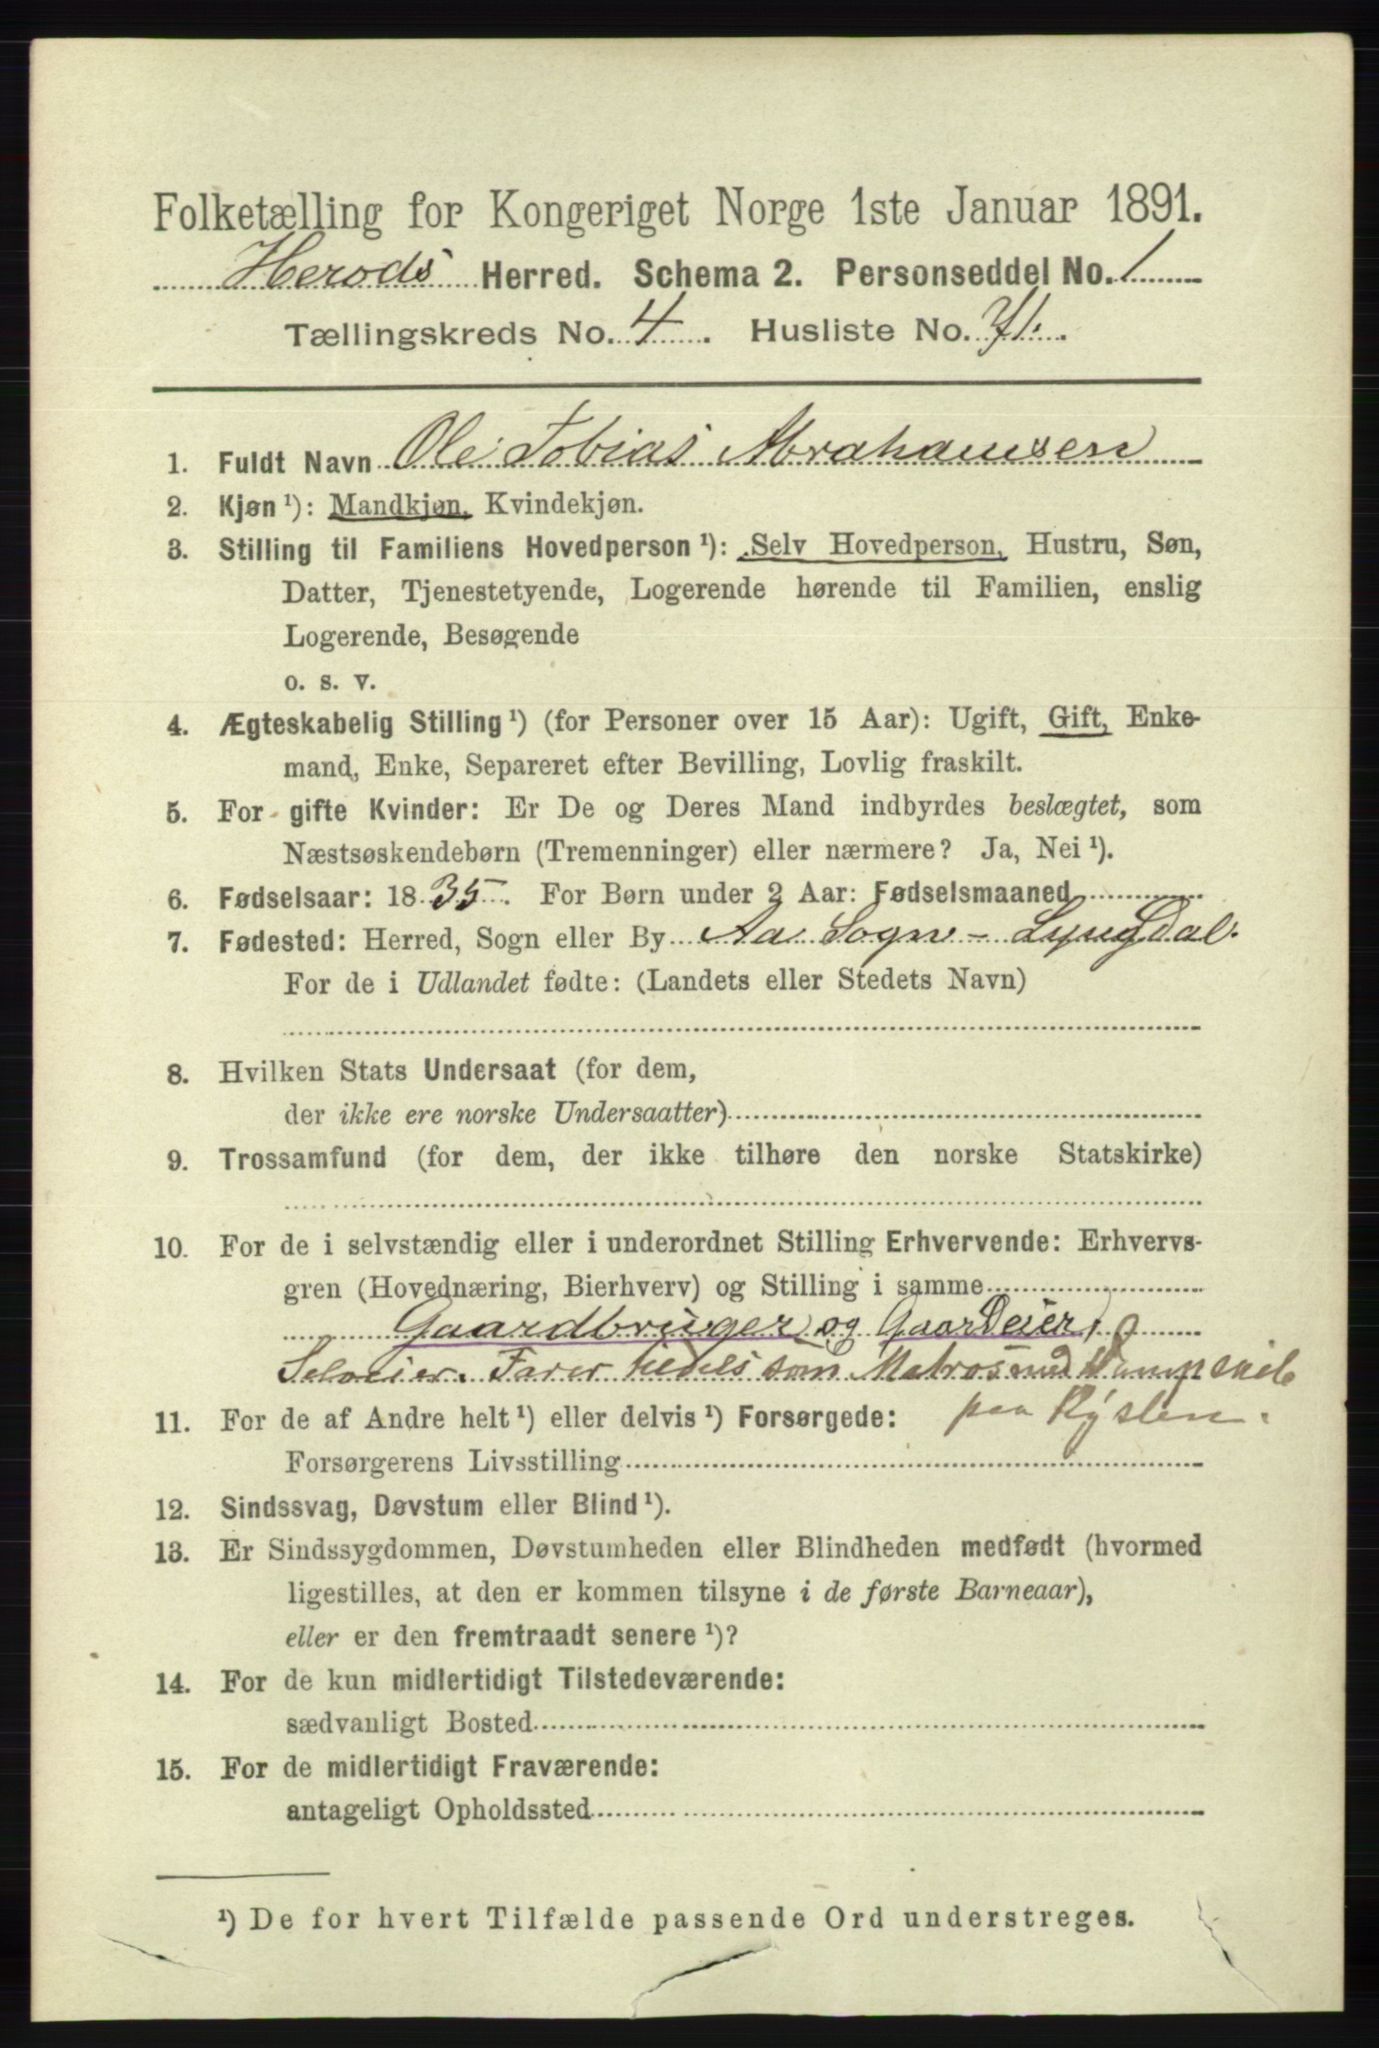 Folketælling for Kongeriget Norge 1ste Januar 1891.
Herods Herred. Schema 2. Personseddel No. 1
Tællingskreds No. 4. Husliste No. 71.
1. Fuldt Navn Ole Tobias Abrahamsen
2. Kjøn ¹): Mandkjøn, Kvindekjøn.
3. Stilling til Familiens Hovedperson ¹): Selv Hovedperson, Hustru, Søn,
Datter, Tjenestetyende, Logerende hørende til Familien, enslig
Logerende, Besøgende
o. s. v.
4. Ægteskabelig Stilling ¹) (for Personer over 15 Aar): Ugift, Gift, Enke-
mand, Enke, Separeret efter Bevilling, Lovlig fraskilt.
5. For gifte Kvinder: Er De og Deres Mand indbyrdes beslægtet, som
Næstsøskendebørn (Tremenninger) eller nærmere? Ja, Nei ¹).
6. Fødselsaar: 1835. For Børn under 2 Aar: Fødselsmaaned
7. Fødested: Herred, Sogn eller By Aa Sogn - Lyngdal.
For de i Udlandet fødte: (Landets eller Stedets Navn)
8. Hvilken Stats Undersaat (for dem,
der ikke ere norske Undersaatter)
9. Trossamfund (for dem, der ikke tilhøre den norske Statskirke)
10. For de i selvstændig eller i underordnet Stilling Erhvervende: Erhvervs-
gren (Hovednæring, Bierhverv) og Stilling i samme
Gaardbruger og Gaardeier,
Selveier. Farer som Matros med Dampskib
paa Kysten.
11. For de af Andre helt ¹) eller delvis ¹) Forsørgede:
Forsørgerens Livsstilling
12. Sindssvag, Døvstum eller Blind ¹).
13. Er Sindssygdommen, Døvstumheden eller Blindheden medfødt (hvormed
ligestilles, at den er kommen tilsyne i de første Barneaar),
eller er den fremtraadt senere ¹)?
14. For de kun midlertidigt Tilstedeværende:
sædvanligt Bosted
15. For de midlertidigt Fraværende:
antageligt Opholdssted
¹) De for hvert Tilfælde passende Ord understreges.